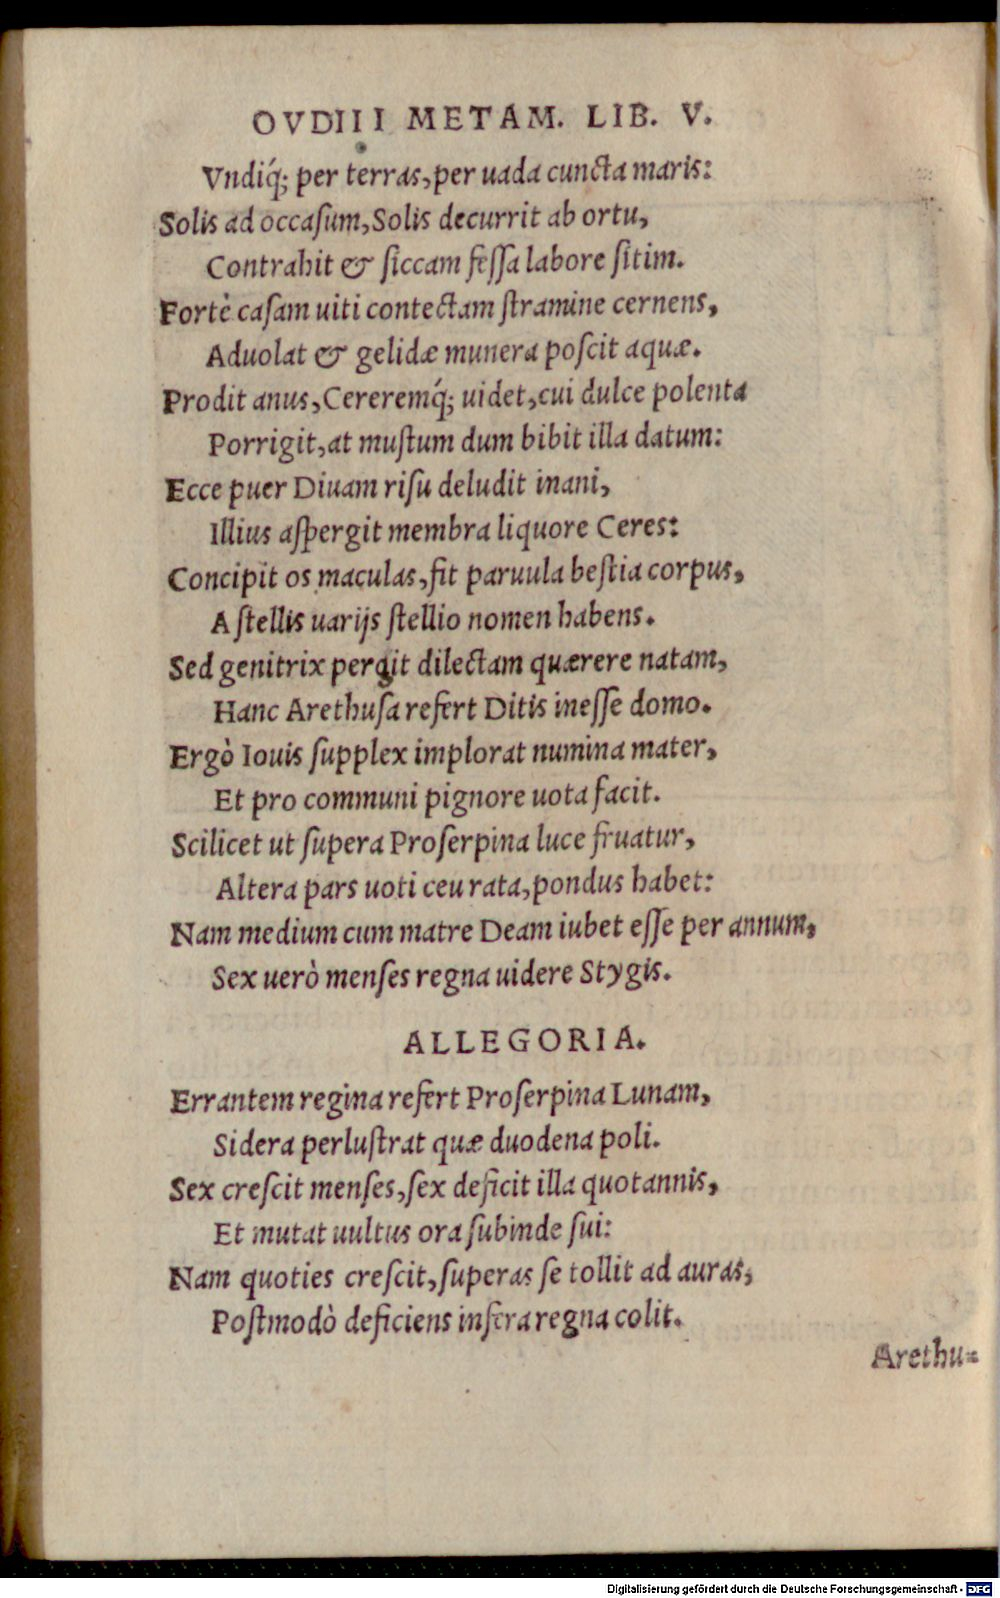 OVDIII METAM. LIB. V.
Vndiq́; per terras, per uada cuncta maris:
Solis ad occaſum, Solis decurrit ab ortu,
Contrahit & ſiccam feſſa labore ſitim.
Fortè caſam uiti contectam ſtramine cernens,
Aduolat & gelidæ munera poſcit aquæ.
Prodit anus, Cereremq́; uidet, cui dulce polenta
Porrigit, at muſtum dum bibit illa datum:
Ecce puer Diuam riſu deludit inani,
Illius aſpergit membra liquore Ceres:
Concipit os maculas, fit paruula beſtia corpus,
A ſtellis uarijs ſtellio nomen habens.
Sed genitrix pergit dilectam quærere natam,
Hanc Arethuſa refert Ditis ineſſe domo.
Ergò Iouis ſupplex implorat numina mater,
Et pro communi pignore uota facit.
Scilicet ut ſupera Proſerpina luce fruatur,
Altera pars uoti ceu rata, pondus habet:
Nam medium cum matre Deam iubet eſſe per annum,
Sex uerò menſes regna uidere Stygis.
ALLEGORIA.
Errantem regina refert Proſerpina Lunam,
Sidera perluſtrat quæ duodena poli.
Sex creſcit menſes, ſex deficit illa quotannis,
Et mutat uultus ora ſubinde ſui:
Nam quoties creſcit, ſuperas ſe tollit ad auras,
Poſtmodò deficiens infera regna colit.
Arethu-
Digitalisierung gefördert durch die Deutsche Forschungsgemeinschaft - DFG